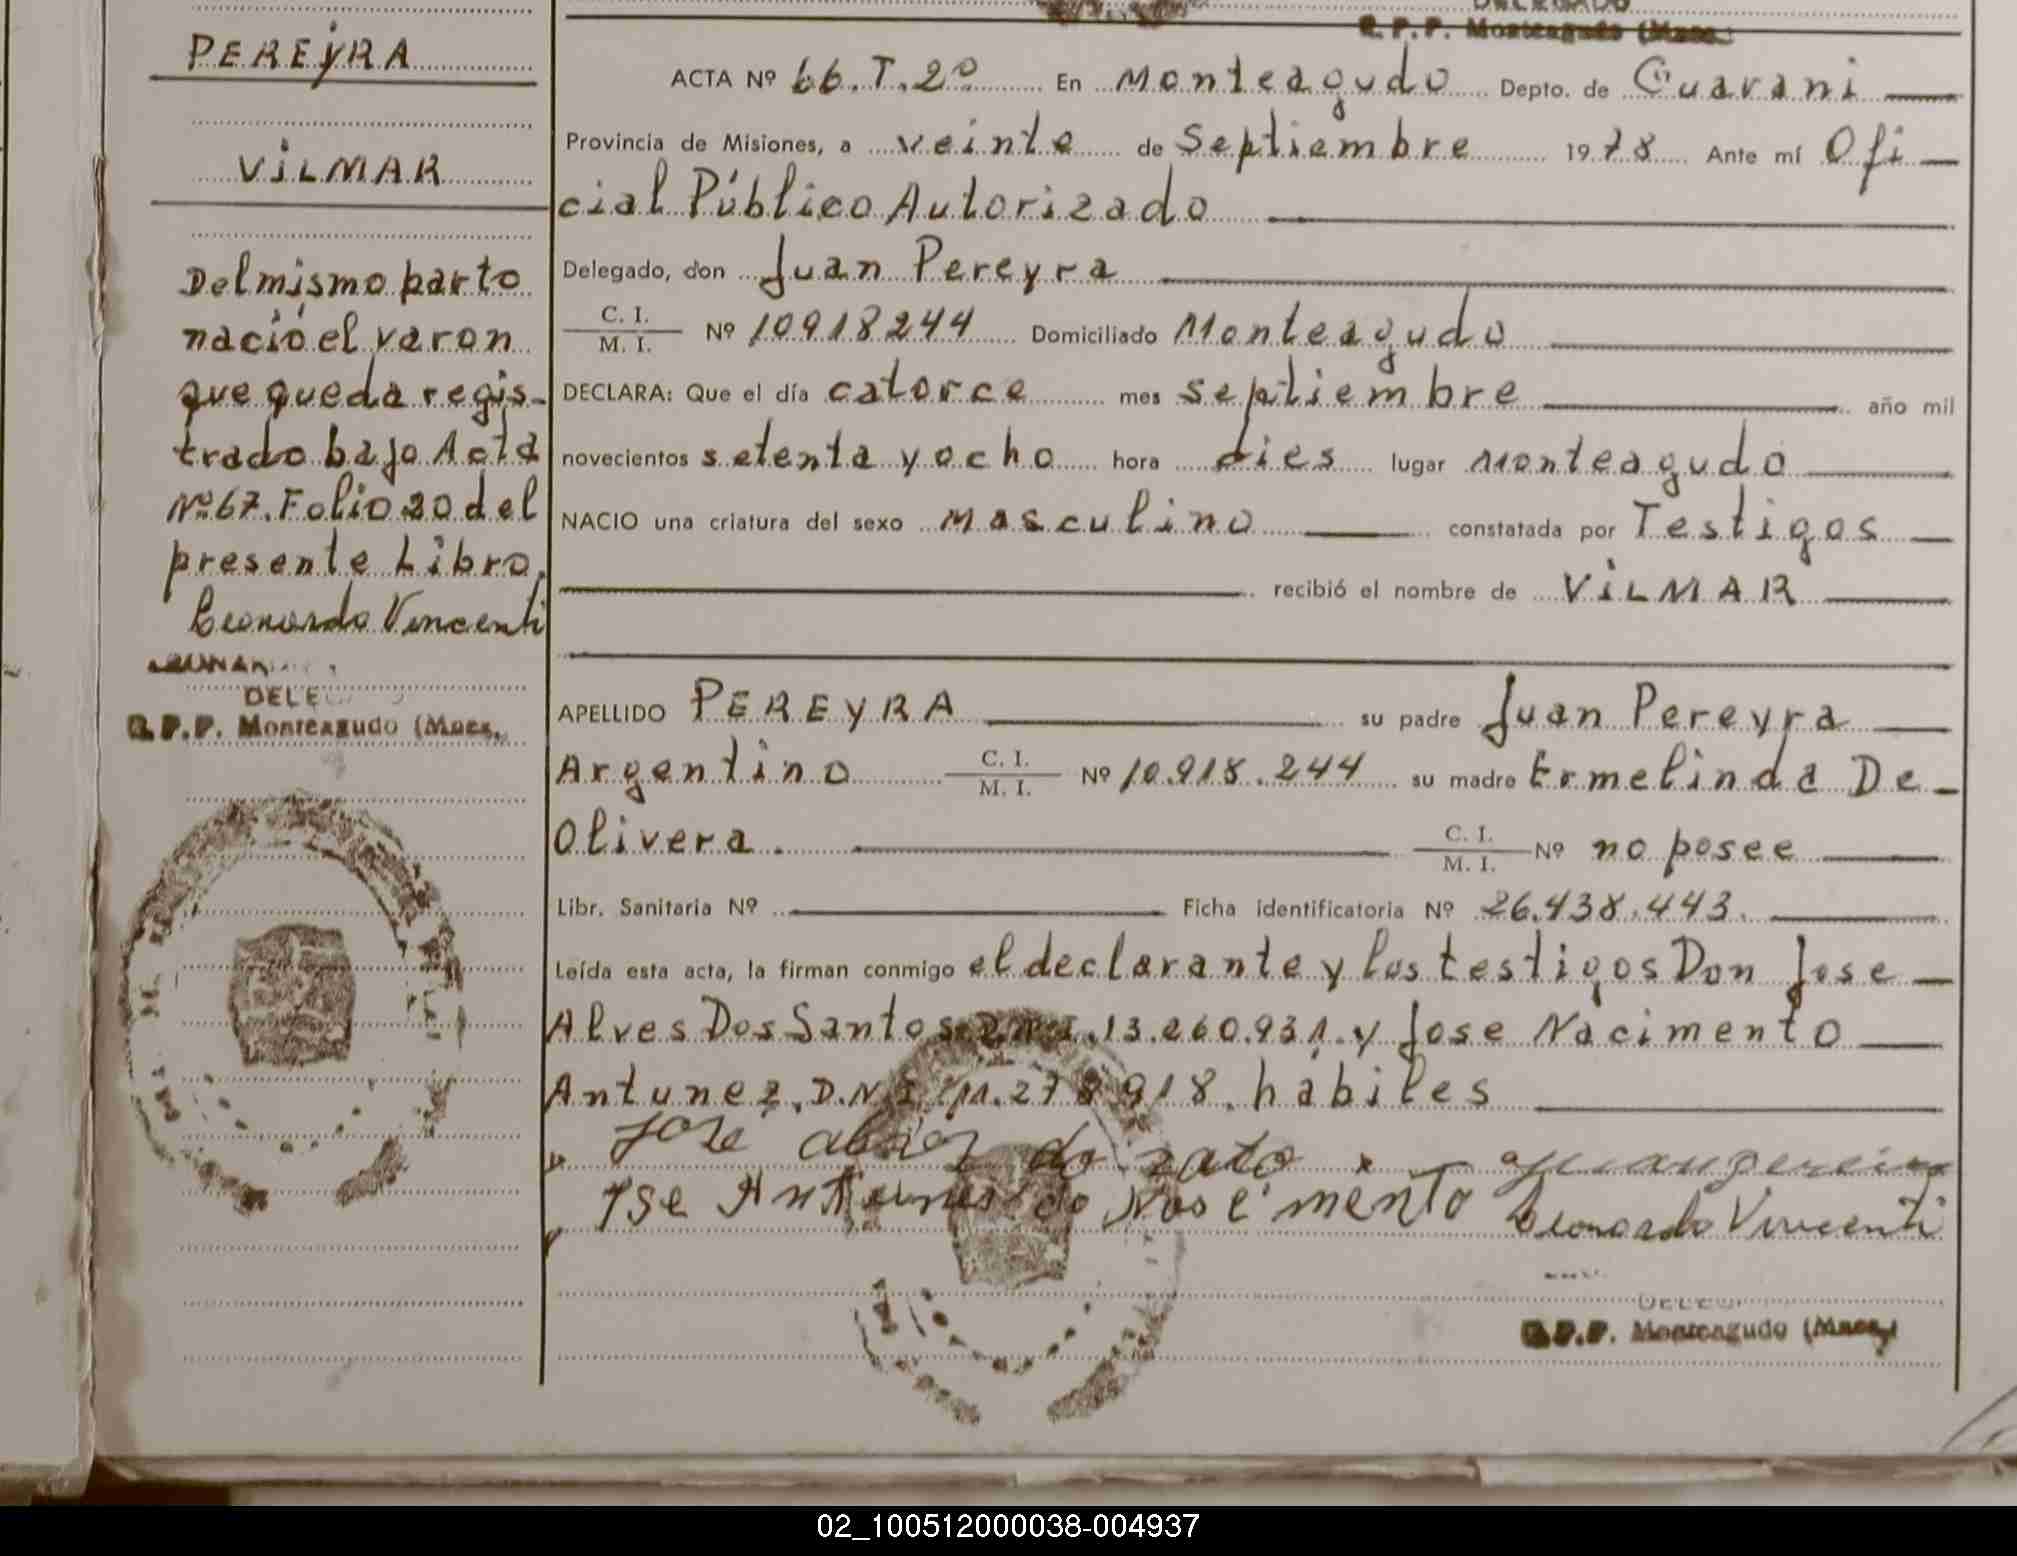 PEREYRA
VILMAR
Del mismo parto
nació el varon
que queda regis-
trado bajo Acta
Nº 67. Folio 20 del
presente Libro.
Leonardo Vincenti
G.P.P. Monteagudo (Mnes.
DELEGADO
G.P.P. Monteagudo (Mnes.
ACTA Nº 66.T.2º En Monteagudo Depto. de Guarani
Provincia de Misiones, a veinte de Septiembre 1978 Ante mí Ofi
cial Público Autorizado
Delegado, don Juan Pereyra
C. I. / M. I. Nº 10918244 Domiciliado Monteagudo
DECLARA: Que el día catorce mes septiembre año mil
novecientos setenta y ocho hora dies lugar Monteagudo
NACIO una criatura del sexo Masculino constatada por Testigos
recibió el nombre de VILMAR
APELLIDO PEREYRA su padre Juan Pereyra
Argentino C. I. / M. I. Nº 10.918.244 su madre Ermelinda De
Olivera. C. I. / M. I. Nº no posee
Libr. Sanitaria Nº Ficha identificatoria Nº 26.438.443.
Leída esta acta, la firman conmigo el declarante y los testigos Don Jose
Alves Dos Santos 13.260.931. y Jose Nacimento
Antunez. D.N.I. 11.278918. habiles
José
Leonardo Vincenti
G.P.P. Monteagudo (Mnes.)
02_100512000038-004937